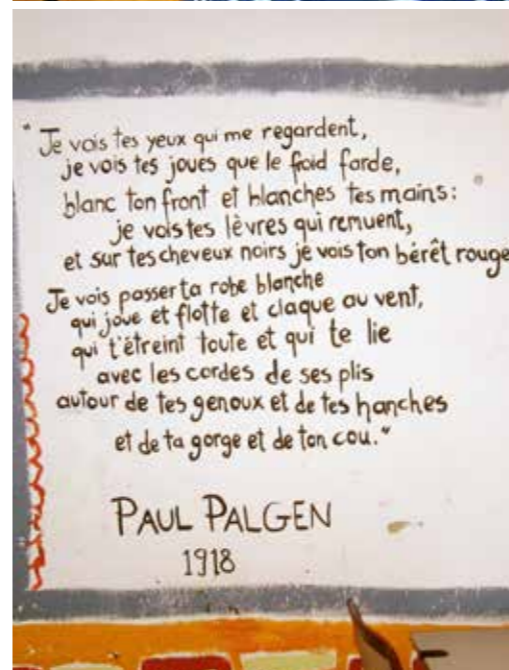 "Je vois tes yeux qui me regardent,
je vois tes joues que le froid farde,
blanc ton front et blanches tes mains:
je vois tes lèvres qui remuent,
et sur tes cheveux noirs je vois ton bérêt rouge
Je vois passer ta robe blanche
qui joue et flotte et claque au vent,
qui t'étreint toute et qui te lie
avec les cordes de ses plis
autour de tes genoux et de tes hanches
et de ta gorge et de ton cou."
PAUL PALGEN
1918